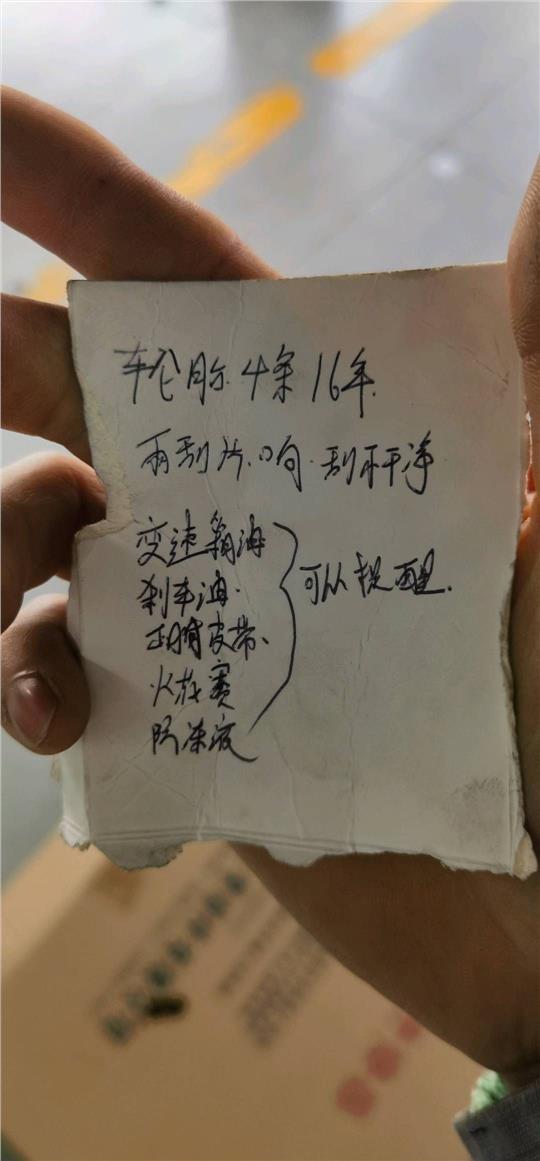 车伦胎.4条16年.
雨刮片.响.刮不干净
变速箱油
刹车油.
正时皮带、
火花赛
防冻液
可以提醒.